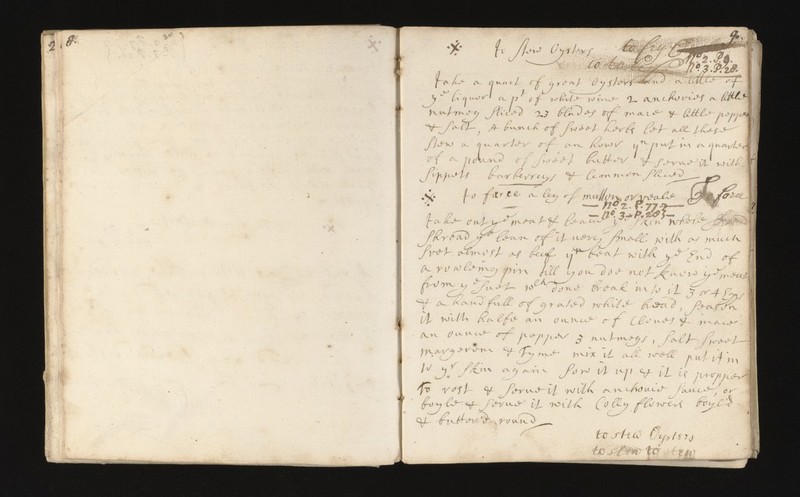 2 8.
9.
To Stew Oysters to fry
No. 2. P. 9.
to
No. 3. P. 28.
take a quart of great Oysters and a little of
ye liquor a pt of white wine 2 anchovies a little
nutmeg sliced 23 blades of mace & little pepper
& salt, A bunch of sweet herbs let all these
stew a quarter of an hower yn put in a quarter
of a pound of sweet butter & serve it with
sippets barberrys & Lemmon sliced
to force a leg of mutton or veale force
No. 2. P. 77
No. 3. P. 203
take out ye meat & leave skin whole
shread ye lean of it very small with as much
suet almost as beef yn beat with ye End of
a rowleing pin till you doe not know ye meat
from ye suet wch done break into it 3 or 4 Eggs
& a handfull of grated white bread, season
it with halfe an ounce of Cloves & mace
an ounce of pepper 3 nutmegs, salt sweet
margerem & Tyme mix it all well put it in
to yr skin again sow it up & it is propper
To rost & serve it with anchovie sauce, or
boyle & serve it with Colly flowers boyl'd
& butter'd round
to stew Oysters
to stew to stew